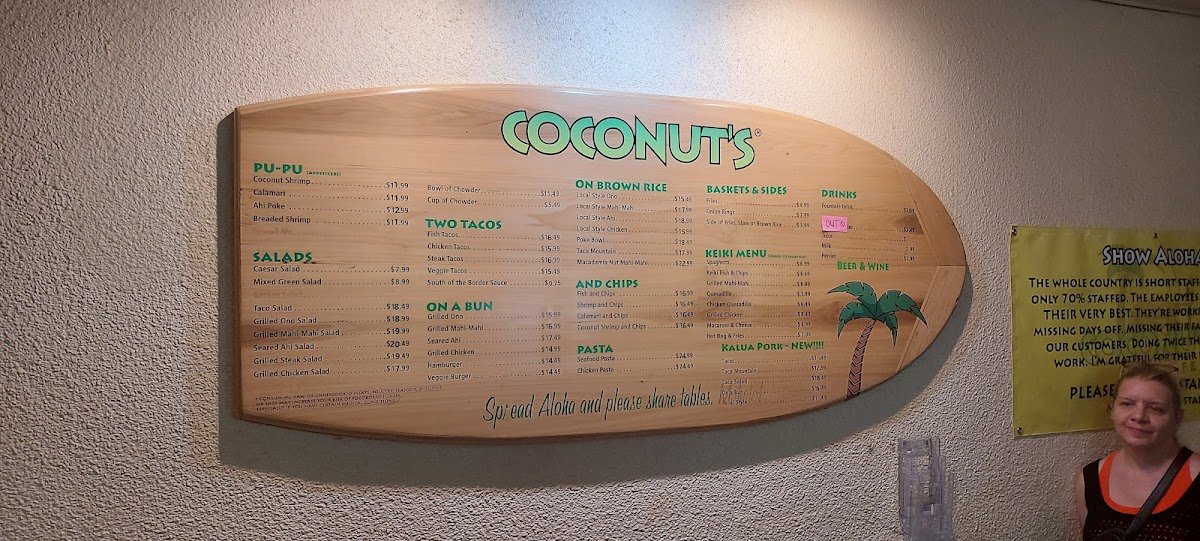 COCONUT'S®
PU-PU (APPETIZERS)
Coconut Shrimp $11.99
Calamari $11.99
Ahi Poke $12.99
Breaded Shrimp $11.99
SALADS
Caesar Salad $7.99
Mixed Green Salad $8.99
Taco Salad $18.49
Grilled Ono Salad $18.99
Grilled Mahi-Mahi Salad $19.99
Seared Ahi Salad $20.49
Grilled Steak Salad $19.49
Grilled Chicken Salad $17.99
Bowl of Chowder $11.49
Cup of Chowder $5.49
TWO TACOS
Fish Tacos $16.49
Chicken Tacos $15.99
Steak Tacos $16.99
Veggie Tacos $15.49
South of the Border Sauce $0.75
ON A BUN
Grilled Ono $15.99
Grilled Mahi-Mahi $16.99
Seared Ahi $17.49
Grilled Chicken $14.99
Hamburger $14.49
Veggie Burger $14.49
ON BROWN RICE
Local Style Ono $15.49
Local Style Mahi-Mahi $17.99
Local Style Ahi $18.99
Local Style Chicken $15.99
Poke Bowl
Taco Mountain $17.99
Macadamia Nut Mahi-Mahi $22.99
AND CHIPS
Fish and Chips $16.99
Shrimp and Chips $16.49
Calamari and Chips $16.49
Coconut Shrimp and Chips $16.49
PASTA
Seafood Pasta $24.99
Chicken Pasta $24.49
BASKETS & SIDES
Fries $4.99
Onion Rings $7.99
Side of Fries, Slaw or Brown Rice $3.99
KEIKI MENU
Spaghetti $6.99
Keiki Fish & Chips $8.49
Grilled Mahi-Mahi $8.49
Quesadilla
Chicken Quesadilla
Grilled Chicken
Macaroni & Cheese
Hot Dog & Fries $7.99
KALUA PORK - NEW!!!!
Tacos
Taco Mountain
Taco Salad $18.49
DRINKS
Fountain Drink
OUT
Milk
BEER & WINE
Spread Aloha and please share tables.
SHOW ALOHA
THE WHOLE COUNTRY IS SHORT STAFF
ONLY 70% STAFFED. THE EMPLOYEES
THEIR VERY BEST. THEY'RE WORK
MISSING DAYS OFF, MISSING THEIR
OUR CUSTOMERS, DOING TWICE TH
WORK. I'M GRATEFUL FOR THEIR
PLEAS